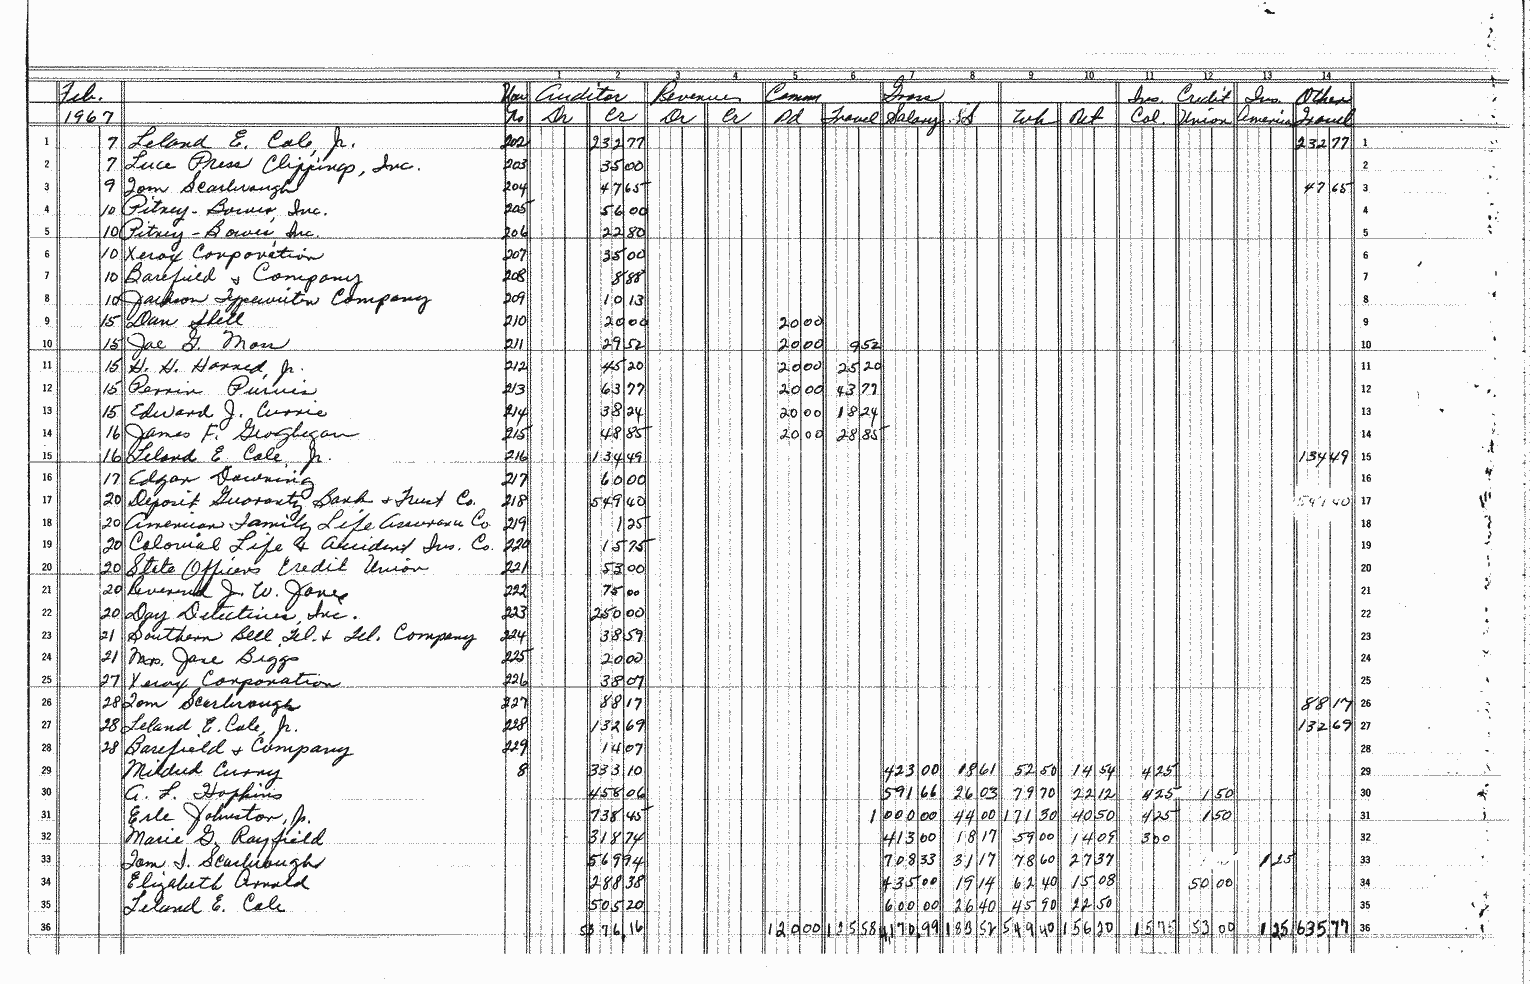 1 2 3 4 5 6 7 8 9 10 11 12 13 14
Feb. Auditor Revenue Comm Gross Ins. Credit Ins. Other
1967 No Dr Cr Dr Cr Pd Travel Salary SS Wh Ret Col. Union America Travel
1 7 Leland E. Cole, Jr. 202 232 77 232 77 1
2 7 Luce Press Clippings, Inc. 203 35 00 2
3 9 Tom Scarbrough 204 47 65 47 65 3
4 10 Pitney-Bowes, Inc. 205 56 00 4
5 10 Pitney-Bowes, Inc. 206 22 80 5
6 10 Xerox Corporation 207 35 00 6
7 10 Barefield & Company 208 8 88 7
8 10 Jackson Typewriter Company 209 10 13 8
9 15 Dan Shell 210 20 00 20 00 9
10 15 Joe G. Moss 211 29 52 20 00 9 52 10
11 15 H. H. Harned, Jr. 212 45 20 20 00 25 20 11
12 15 Perrin Purvis 213 63 77 20 00 43 77 12
13 15 Edward J. Currie 214 38 24 20 00 18 24 13
14 16 James F. Geoghegan 215 48 85 20 00 28 85 14
15 16 Leland E. Cole, Jr. 216 134 49 134 49 15
16 17 Edgar Downing 217 60 00 16
17 20 Deposit Guaranty Bank & Trust Co. 218 549 40 549 40 17
18 20 American Family Life Assurance Co. 219 1 25 18
19 20 Colonial Life & Accident Ins. Co. 220 15 75 19
20 20 State Officers Credit Union 221 53 00 20
21 20 Reverend J. W. Jones 222 75 00 21
22 20 Day Detectives, Inc. 223 250 00 22
23 21 Southern Bell Tel. & Tel. Company 224 38 59 23
24 21 Mrs. Jane Biggs 225 20 00 24
25 27 Xerox Corporation 226 38 07 25
26 28 Tom Scarbrough 227 88 17 88 17 26
27 28 Leland E. Cole, Jr. 228 132 69 132 69 27
28 28 Barefield & Company 229 14 07 28
29 Mildred Curry 8 333 10 423 00 18 61 52 50 14 54 4 25 29
30 A. L. Hopkins 458 06 591 66 26 03 79 70 22 12 4 25 1 50 30
31 Erle Johnston, Jr. 738 45 1 000 00 44 00 171 30 40 50 4 25 1 50 31
32 Marie G. Rayfield 318 74 413 00 18 17 59 00 14 09 3 00 32
33 Tom I. Scarbrough 569 94 708 33 31 17 78 60 27 37 1 25 33
34 Elizabeth Arnold 288 38 435 00 19 14 62 40 15 08 50 00 34
35 Leland E. Cole 505 20 600 00 26 40 45 90 22 50 35
36 5376,16 120 00 125 58 4,170,99 183 52 549 40 156 20 15 75 53 00 1 25 635,77 36